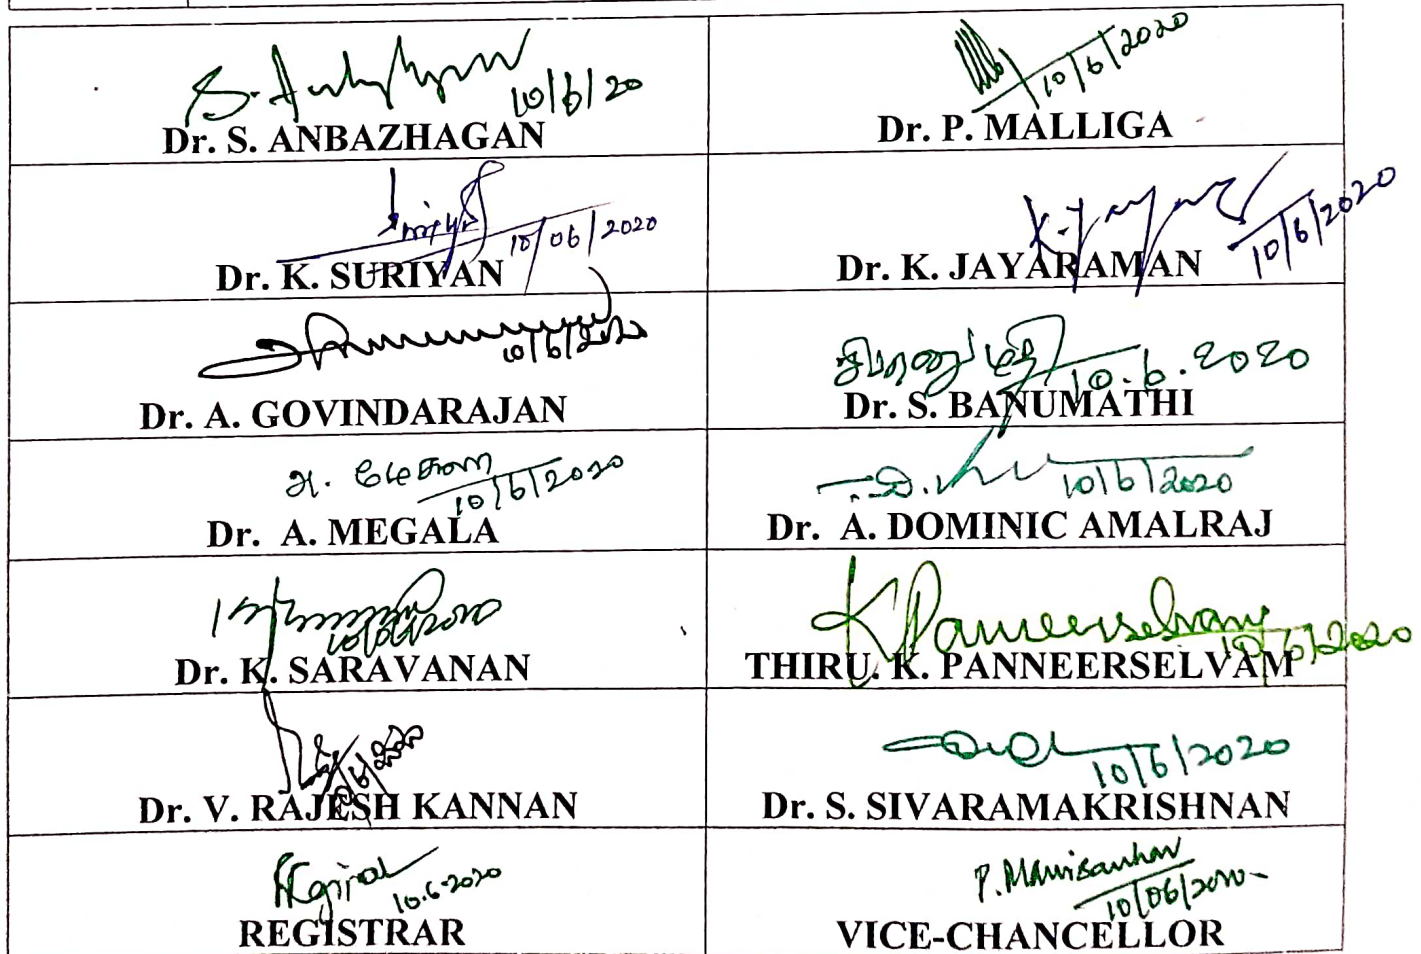 S. Anbazhagan 10/6/20
Dr. S. ANBAZHAGAN
10/6/2020
Dr. P. MALLIGA
10/06/2020
Dr. K. SURIYAN
K. Jayaraman 10/6/2020
Dr. K. JAYARAMAN
10/6/2020
Dr. A. GOVINDARAJAN
10.6.2020
Dr. S. BANUMATHI
அ. மேகலா
10/6/2020
Dr. A. MEGALA
10/6/2020
Dr. A. DOMINIC AMALRAJ
10/06/2020
Dr. K. SARAVANAN
K Panneerselvam
10/6/2020
THIRU. K. PANNEERSELVAM
10/6/2020
Dr. V. RAJESH KANNAN
10/6/2020
Dr. S. SIVARAMAKRISHNAN
10.6.2020
REGISTRAR
P. Manisankar
10/06/2020
VICE-CHANCELLOR